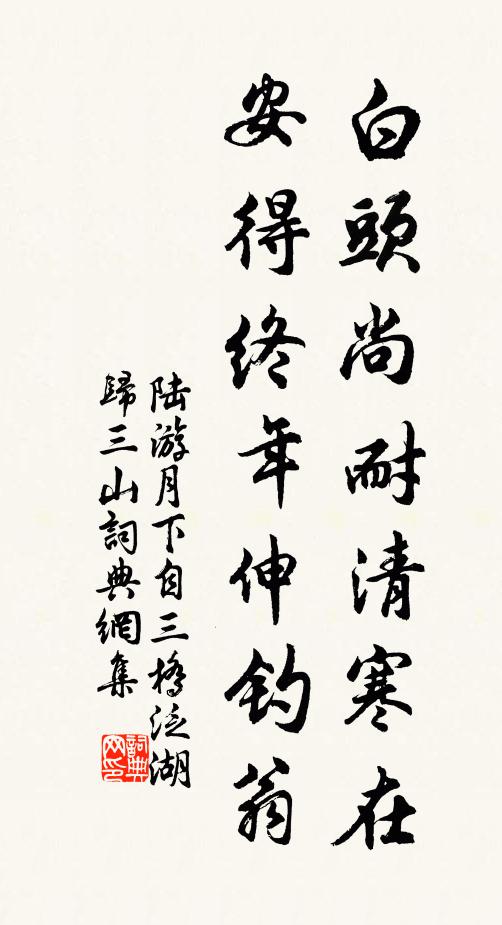 白頭尚耐清寒在
安得終年伸釣翁
陆游月下自三橋泛湖
歸三山詞典網集
詞典
网印